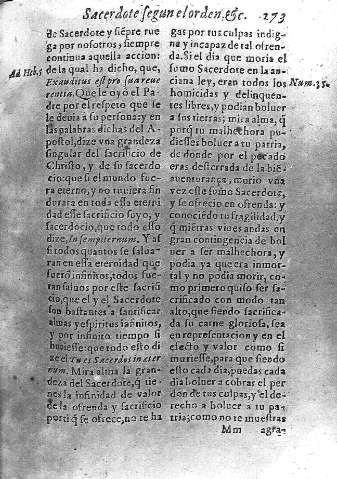 Sacerdote segun el orden, &c. 273
de Sacerdote y siēpre rue
ga por nosotros, siempre
continua aquella accion:
Ad Heb. 5
de la qual ha dicho, que,
Exauditus est pro sua reue
rentia. Que le oyò el Pa
dre por el respeto que le
le deuia a su persona: y en
las palabras dichas del A-
postol, dize vna grandeza
singular del sacrificio de
Christo, y de su sacerdo
cio: que si el mundo fue-
ra eterno, y no tuuiera fin
durara en toda essa eterni
dad esse sacrificio suyo, y
sacerdocio, que todo esso
dize, In sempiternum. Y as
si todos quantos se salua-
ran en essa eternidad que
fuerā infinitos, todos fue-
ran saluos por este sacrifi
cio, que el y el Sacerdote
son bastantes a santificar
almas y espiritus infinitos,
y por infinito tiempo si
huuiesse: que todo esto di
ze el Tu es Sacerdos in eter
num. Mira alma la gran-
deza del Sacerdote, q̄ tie-
nes la infinidad de valor
de la ofrenda y sacrificio
por ti q̄ se ofrece, no te ha
gas por tus culpas indig-
na y incapaz de tal ofren-
da. Si el dia que moria el su
mo Sacerdote en la an-
ciana ley, eran todos los
Num. 35.
homicidas y delinquen-
tes libres, y podian boluer
a sus tierras; mira alma, q̄
porq̄ tu malhechora pu-
diesses boluer a tu patria,
de donde por el pecado
eras desterrada de la biē-
auenturança, murio vna
vez esse sumo Sacerdote,
y se ofrecio en ofrenda: y
conociēdo tu fragilidad, y
q̄ mietras viues andas en
gran contingencia de bol
uer a ser malhechora, y
podia ya que era inmor-
tal y no podia morir, co-
mo primero quiso ser sa-
crificado con modo tan
alto, que siendo sacrifica-
da su carne gloriosa, sea
en representacion y en el
efecto y valor como si
muriesse, para que siendo
esso cada dia, puedas cada
dia boluer a cobrar el per
don de tus culpas, y el de-
recho a boluer a tu pa-
tria; como no te muestras
Mm agra-